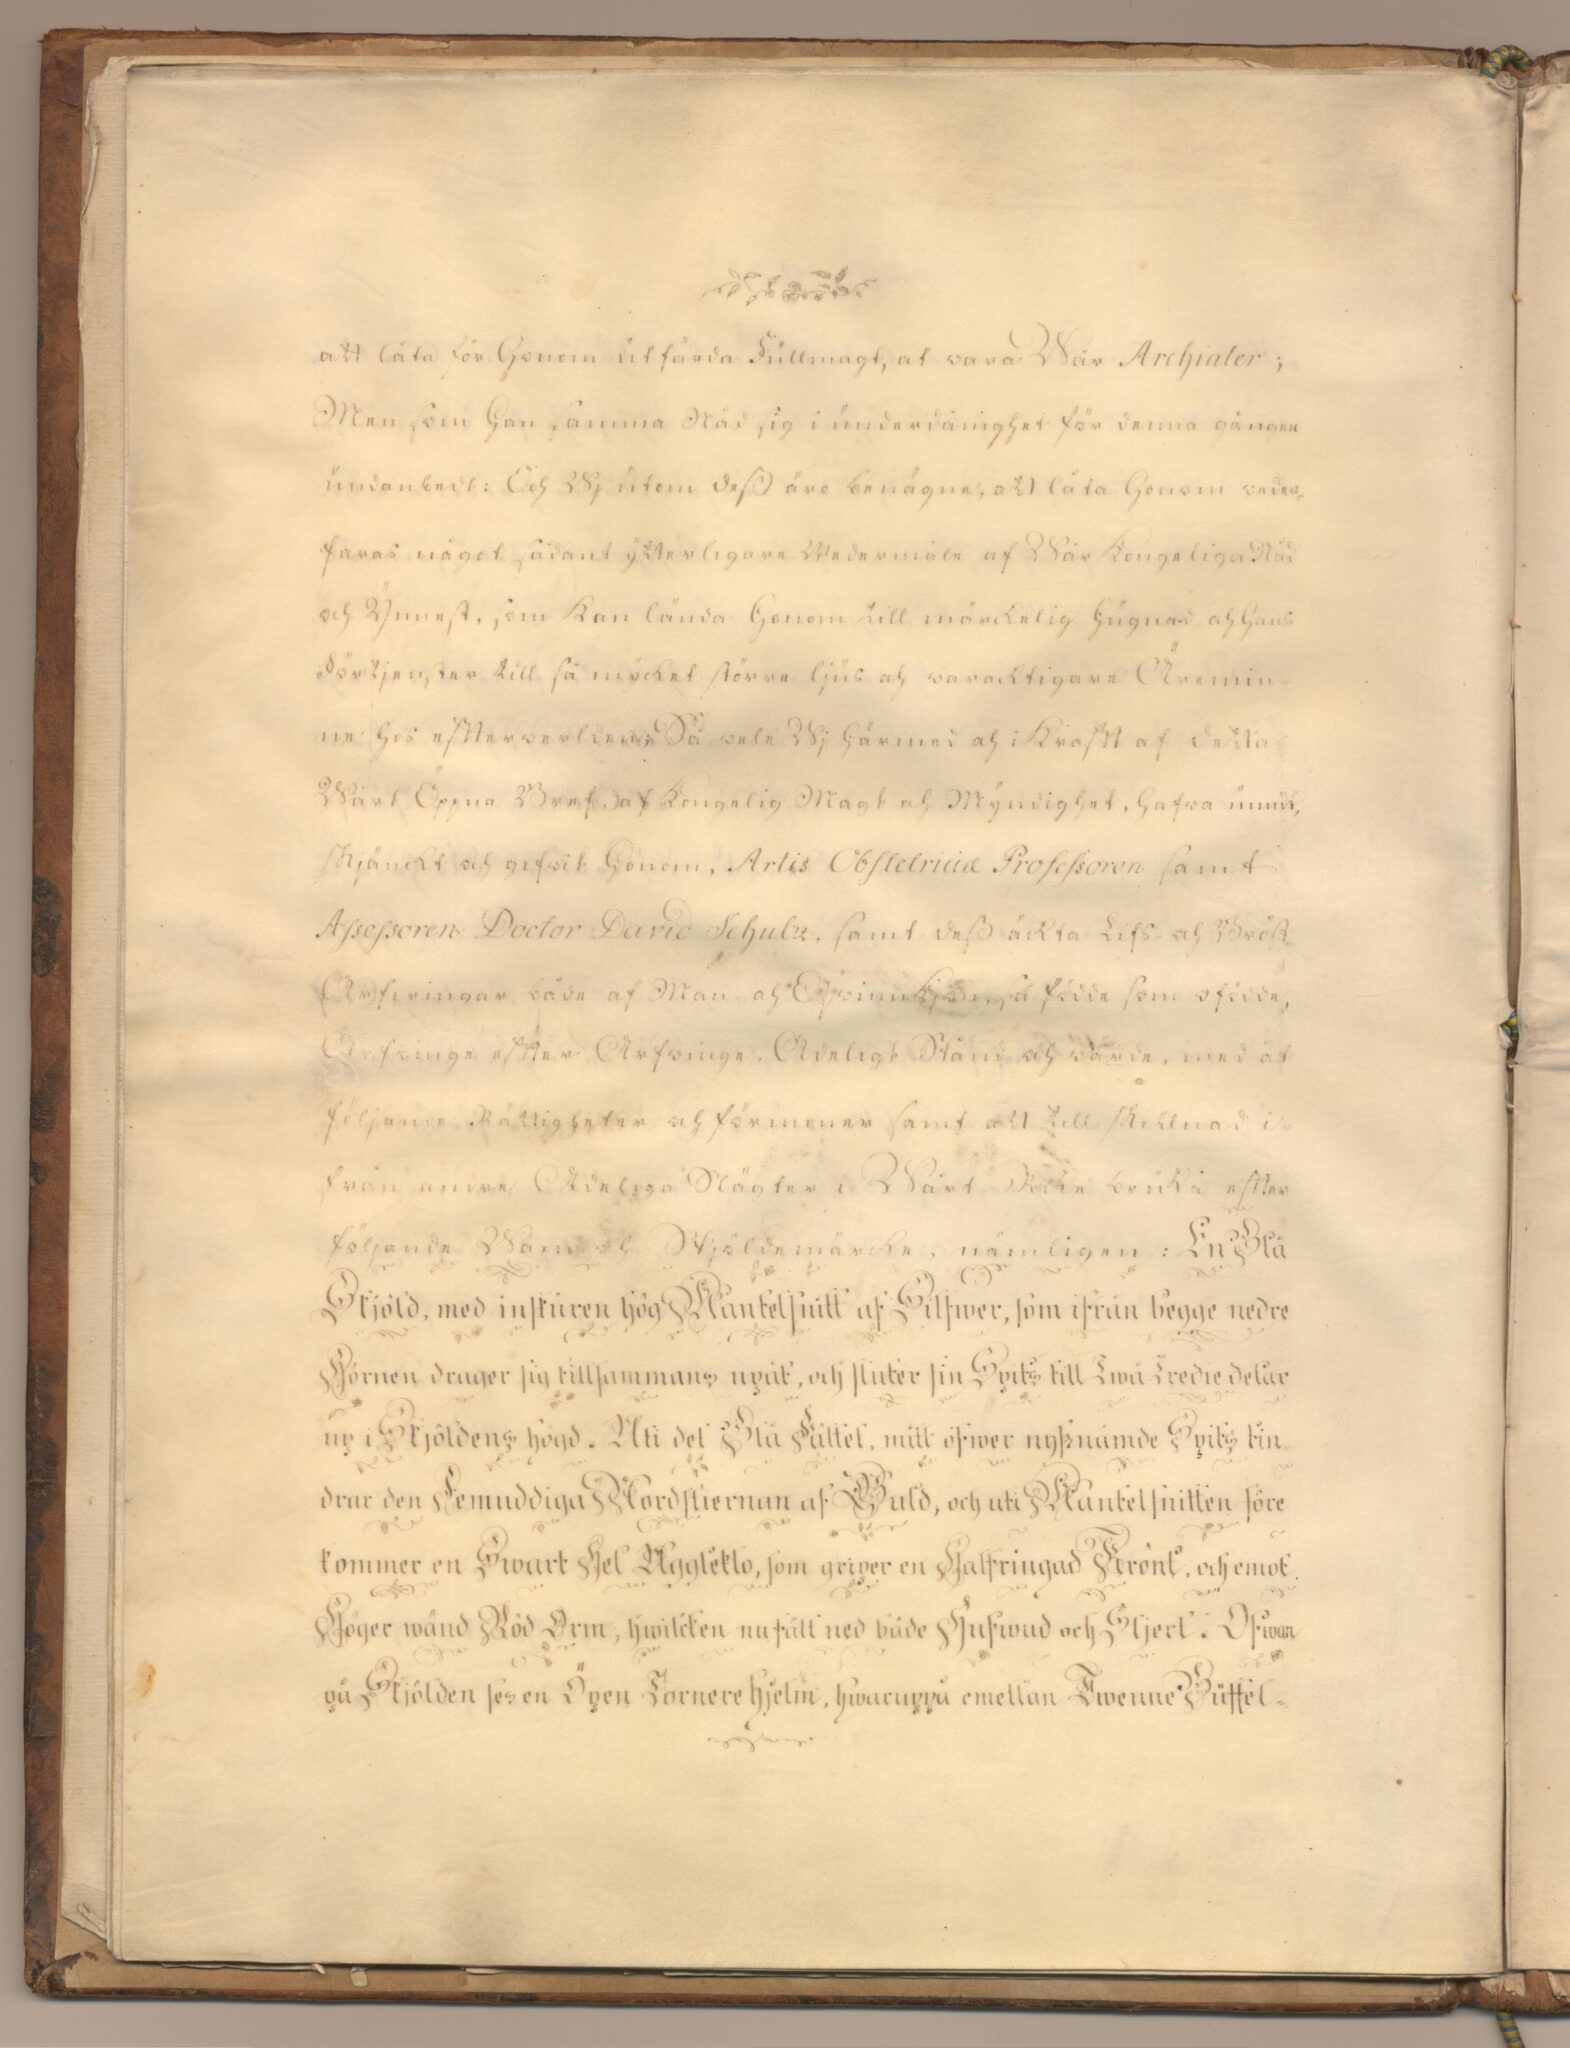 att låta för Honom utfärda Fullmagt, at vara Wår Archiater;
Men som Han samma Nåd sig i underdånighet för denna gången
undanbedt: Och Wj utom deß äro benägne, att låta Honom veder-
faras något sådant ytterligare Wedermäle af Wår Kongeliga Nåd
och Ynnest, som kan lända Honom till märckelig Hugnad och Hans
Förtjenster till så mycket större ljus och varacktigare Äremin-
ne hos effterverlden; Så vele Wj Härmed och i Krafft af detta
Wårt Öppna Bref, af Kongelig Magt och Myndighet, hafva unnt,
skjänckt och gifvit Honom, Artis Obstetriciæ Professoren samt
Assessoren Doctor David Schulz, samt deß äckta Lifs- och Bröst-
Arfvingar både af Man- och Qvinnkjön, så födde som ofödde,
Arfvinge effter Arfvinge, Adeligt Stånd och värde, med åt
följande Rättigheter och förmoner samt att till skillnad i-
från andre Adeliga Slägter i Wårt Rike bruka effter
följande Wapn och Skjöldemärcke, nämligen: En Blå
Skjöld, med inskuren hög Mantelsnitt af Silfwer, som ifrån begge nedre
Hörnen drager sig tillsammans upåt, och sluter sin Spits till Twå Tredie delar
up i Skjöldens högd. Uti det Blå Fältet, mitt öfwer nyßnämde Spits tin-
drar den Femuddiga Nordstiernan af Guld, och uti Mantelsnitten före
kommer en Swart Hel Uggleklo, som griper en Halfringad Krönt, och emot
Höger wänd Röd Orm, hwilcken nufält ned både Hufwud och Stjert. Ofwan
på Skjölden ses en Öpen Tornere hjelm, hwaruppå emellan Twenne Büffel-